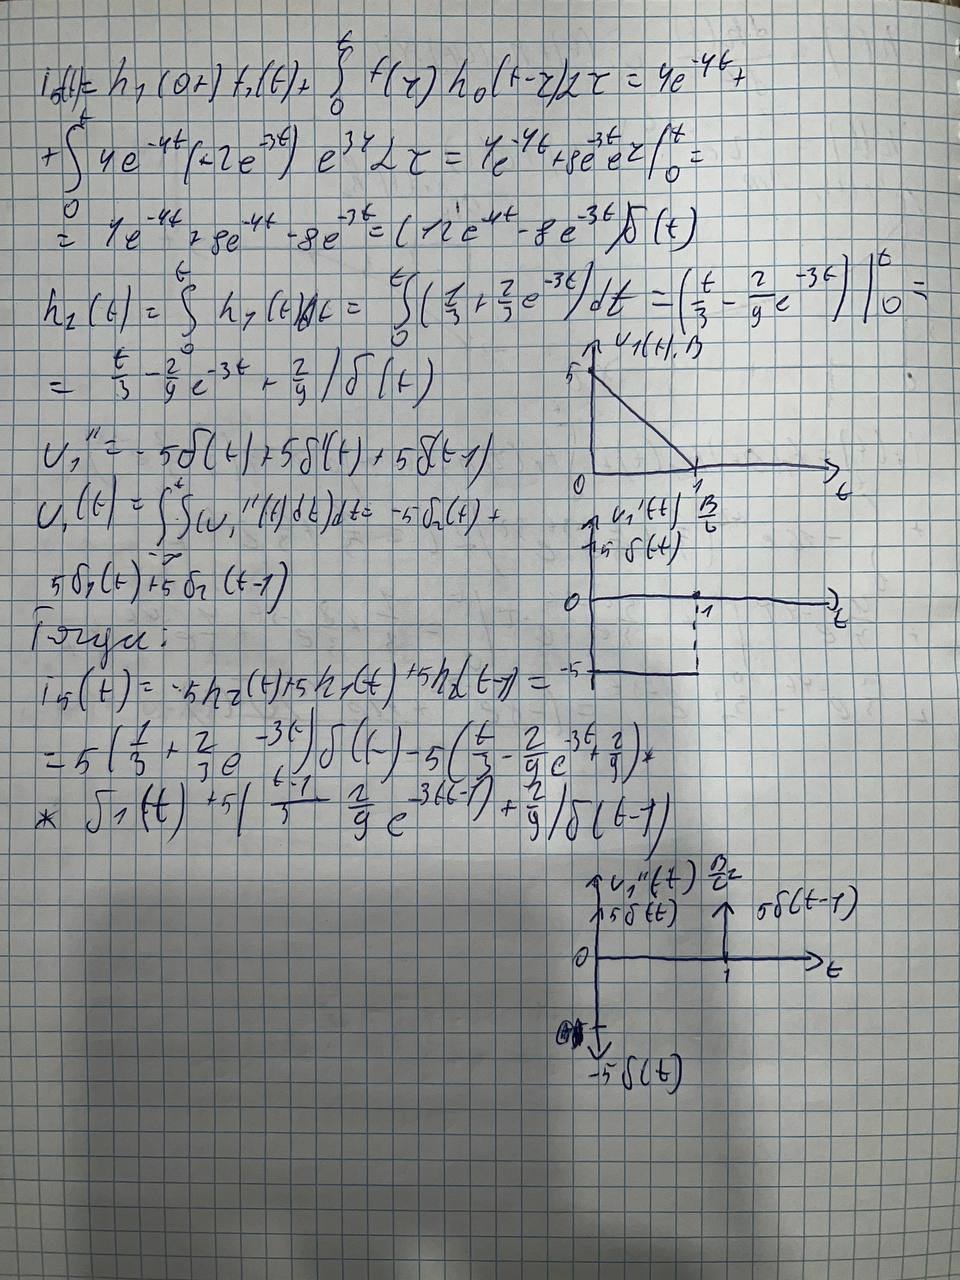 i₅(t) = h₁(0+) f₁(t) + ∫₀ᵗ f(τ) h₀(t-τ)dτ = 4e^{-4t} +
+ ∫₀ᵗ 4e^{-4t}(-2e^{-3t}) e^{3τ} dτ = 4e^{-4t} + 8e^{-3t}e^{τ}|₀ᵗ =
= 4e^{-4t} + 8e^{-4t} - 8e^{-3t} = (12e^{-4t} - 8e^{-3t})δ(t)
h₂(t) = ∫₀ᵗ h₁(t)dt = ∫₀ᵗ (1/3 + 2/3 e^{-3t})dt = (t/3 - 2/9 e^{-3t})|₀ᵗ =
= t/3 - 2/9 e^{-3t} + 2/9) δ(t)
u₁(t), В
5
0
1
t
u₁'' = -5δ(t) + 5δ'(t) + 5δ(t-1)
u₁(t) = ∫∫(u₁''(t)dt)dt = -5δ₂(t) +
5δ₁(t) + 5δ₂(t-1)
u₁'(t) В/с
5δ(t)
0
1
t
-5
Тогда:
i₅(t) = -5h₂(t) + 5h₁(t) + 5h₂(t-1) =
= 5(1/3 + 2/3 e^{-3t})δ(t) - 5(t/3 - 2/9 e^{-3t} + 2/9)*
* δ₁(t) + 5((t-1)/3 - 2/9 e^{-3(t-1)} + 2/9)δ(t-1)
u₁''(t) В/с²
5δ(t)
5δ(t-1)
0
1
t
-5δ(t)